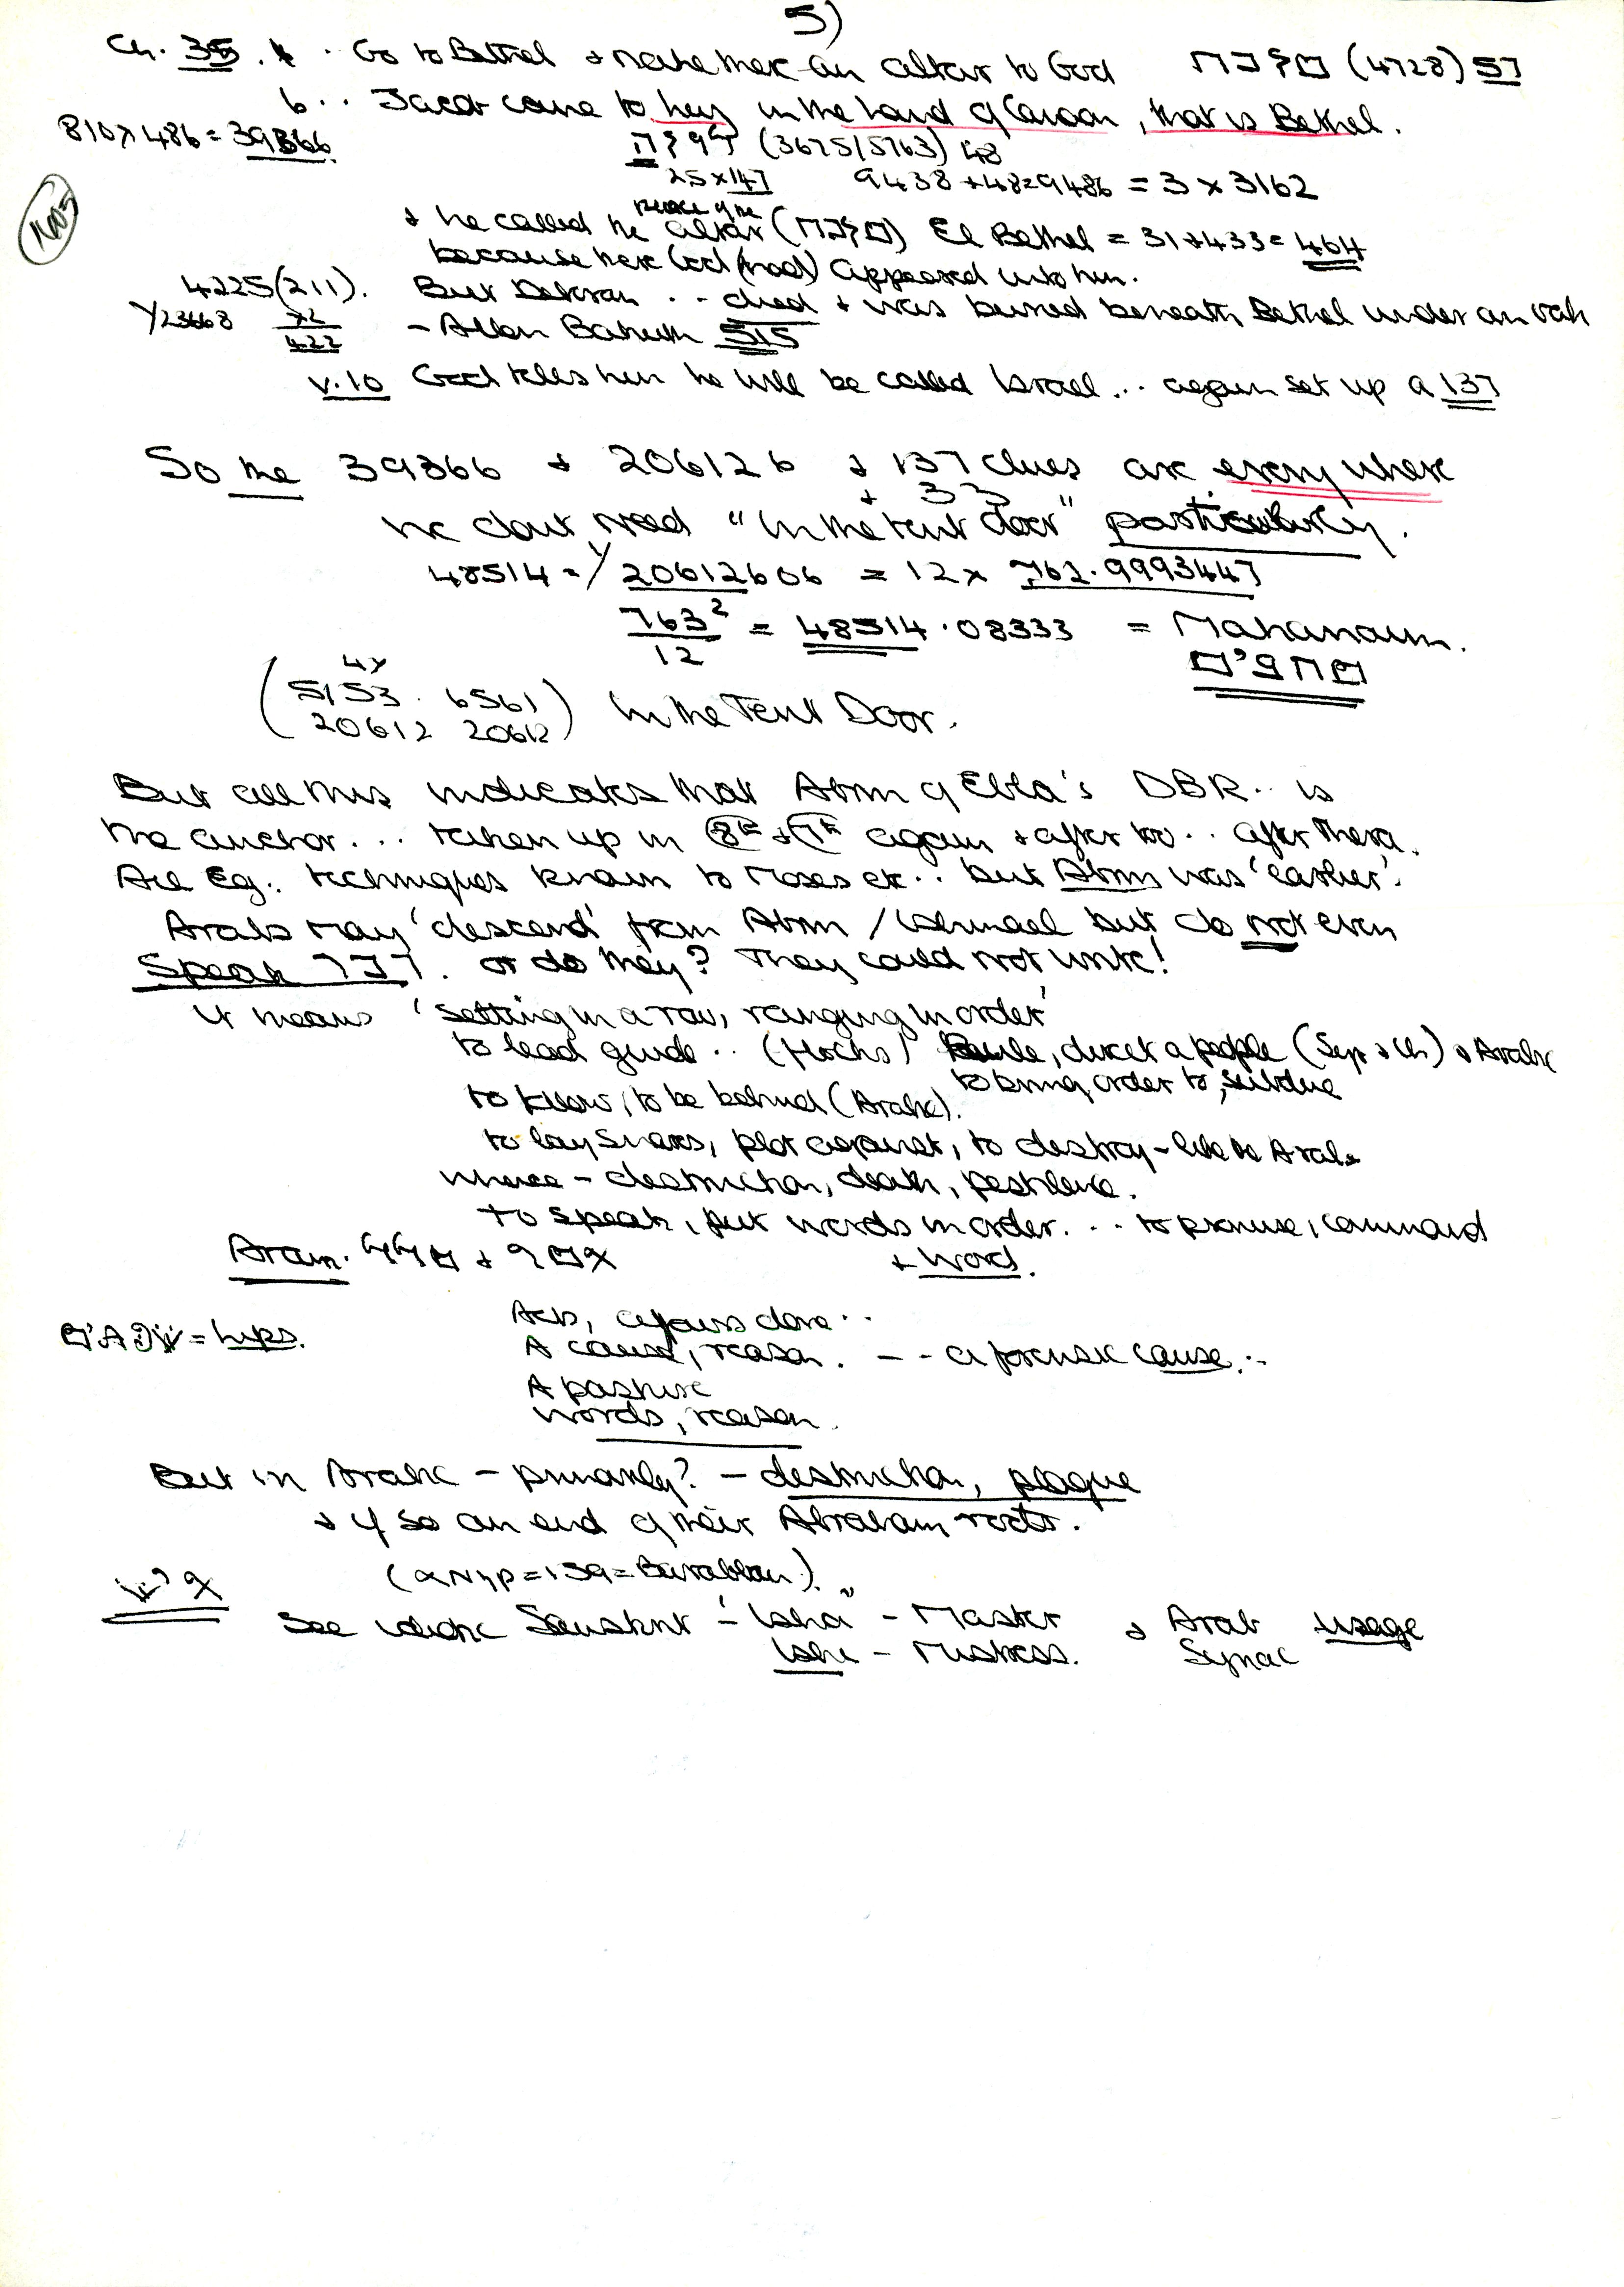 5)
Ch. 35. · Go to Bethel + make there an altar to God מזבח (4728) 57
6 .. Jacob came to Luz in the land of Canaan, that is Bethel.
810 × 486 = 39366
(3675/5763) 48
25 × 147 9438 + 48 = 9486 = 3 × 3162
place of the
+ he called the altar (מזבח) El Bethel = 31 + 433 = 464
because there God (had) appeared unto him.
4225 (211). But Deborah .. died + was buried beneath Bethel under an oak
×2
422
- Allon Bakuth 515
v.10 God tells him he will be called Israel... again set up a 137
So the 39366 + 206126 + 137 clues are everywhere
+ 33
he dont need "In the tent door" particularly.
48514 = √ 20612606 = 12 × 762.9993447
763² / 12 = 48514.08333 = Mahanaim.
מחנים
(5153 · 6561) In the Tent Door.
20612 20612
But all this indicates that Abm of Ebla's DBR.. is
the anchor... taken up in 8th + 7th again + after too.. after Thera.
Are Eg.. techniques known to Moses etc.. but Abm was 'earlier'.
Arabs may 'descend' from Abm / Ishmael but do not even
Speak דבר. or do they? They could not write!
It means 'setting in a row, ranging in order'
to lead guide .. (flocks) rule, direct a people (Syr + Ch) + Arabic
to bring order to, subdue
to know, to be behind (Arabic).
to lay snares, plot against, to destroy - like the Arabs
whence - destruction, death, pestilence.
to speak, put words in order... to promise, command
+ word.
Aram. מלל + אמר
= lips.
Acts, affairs done ..
A cause, reason. - - a forensic cause..
A pasture
words, reason.
But in Arabic - primarily? - destruction, plague
+ if so an end of their Abraham roots.
איש
See Vedic Sanskrit - 'Isha' - Master + Arab usage
Ishi - Mistress. Syriac